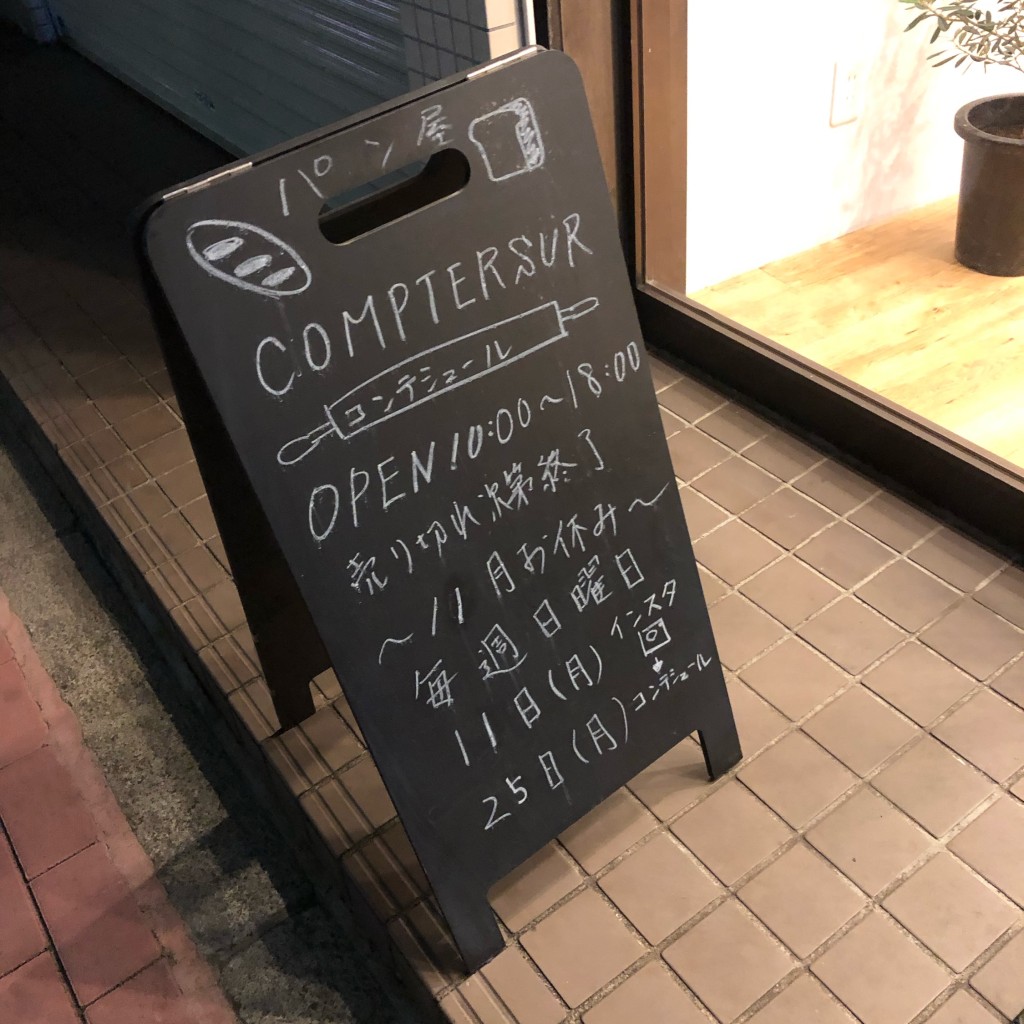 パン屋
COMPTERSUR
コンテシュール
OPEN 10:00〜18:00
売り切れ次第終了
〜11月お休み〜
毎週日曜日
11日(月)
25日(月)
インスタ
コンテシュール